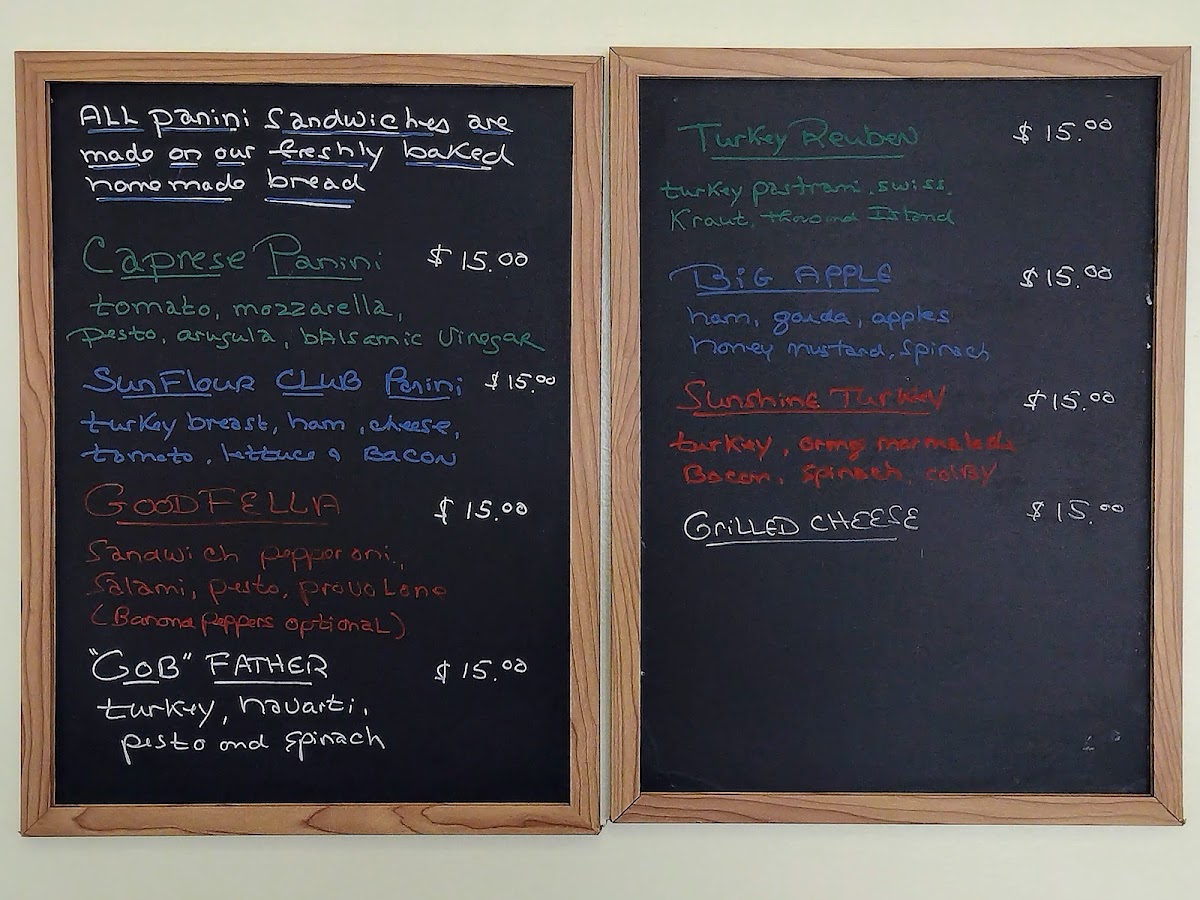 ALL panini Sandwiches are
made on our freshly baked
homemade bread
Caprese Panini $15.00
tomato, mozzarella,
Pesto, arugula, bALsamic Vinegar
SunFlour CLUB Panini $15.00
turkey breast, ham, cheese,
tomato, lettuce & BACON
GOODFELLA $15.00
Sandwich pepperoni,
Salami, pesto, provoLone
(Banana peppers optionaL)
"GoB" FATHER $15.00
turkey, havarti,
pesto and spinach
Turkey Reuben $15.00
turkey pastrami, swiss,
Kraut, thousand Island
BiG APPLE $15.00
ham, gouda, apples
honey mustard, spinach
Sunshine Turkey $15.00
turkey, orang marmalade
Bacon, spinach, colby
GriLLED CHEESE $15.00